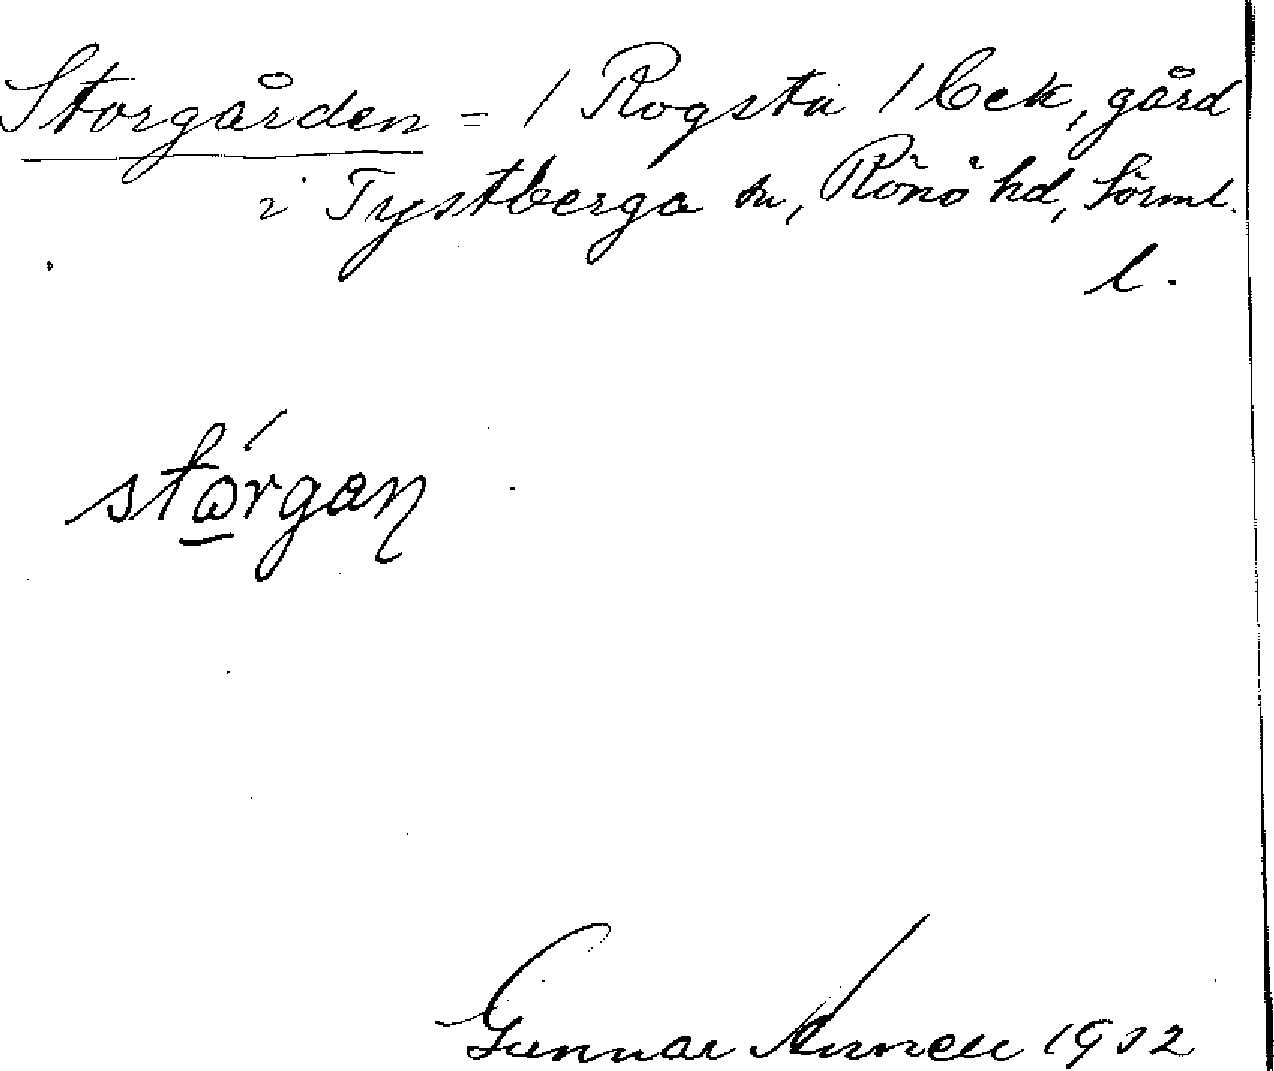 Storgården = / Rogsta / Eek, gård
i Tystberga sn, Rönö hd, Sörml.
l.
stórgan
Gunnar 1902